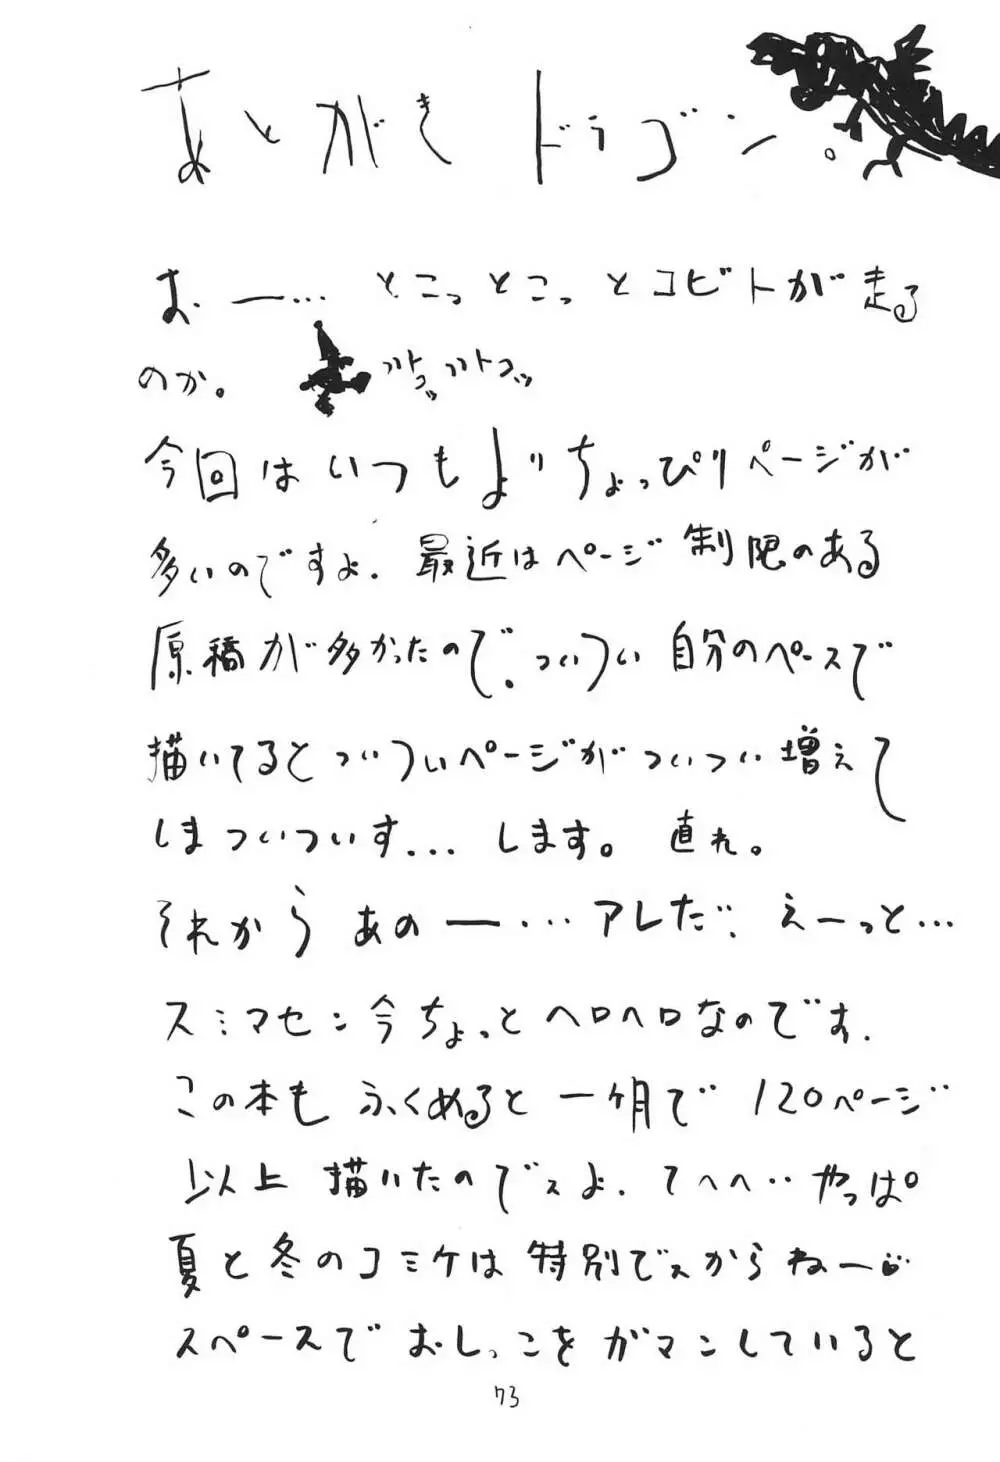 あとがきドラゴン。
おー… とこっとこっとコビトが走る
のか。 トコッ トコッ
今回はいつもよりちょっぴりページが
多いのですよ. 最近はページ制限のある
原稿が多かったので. ついつい自分のペースで
描いてるとついついページがついつい増えて
しまついついす... します。 直れ。
それから あのー… アレだ.. えーっと…
スミマセン今ちょっとヘロヘロなのです.
この本も ふくめると 一ヶ月で 120ページ
以上 描いたのでスよ. てへへ‥ やっぱ
夏と冬のコミケは特別でスからねー
スペースで おしっこを ガマンしていると
73